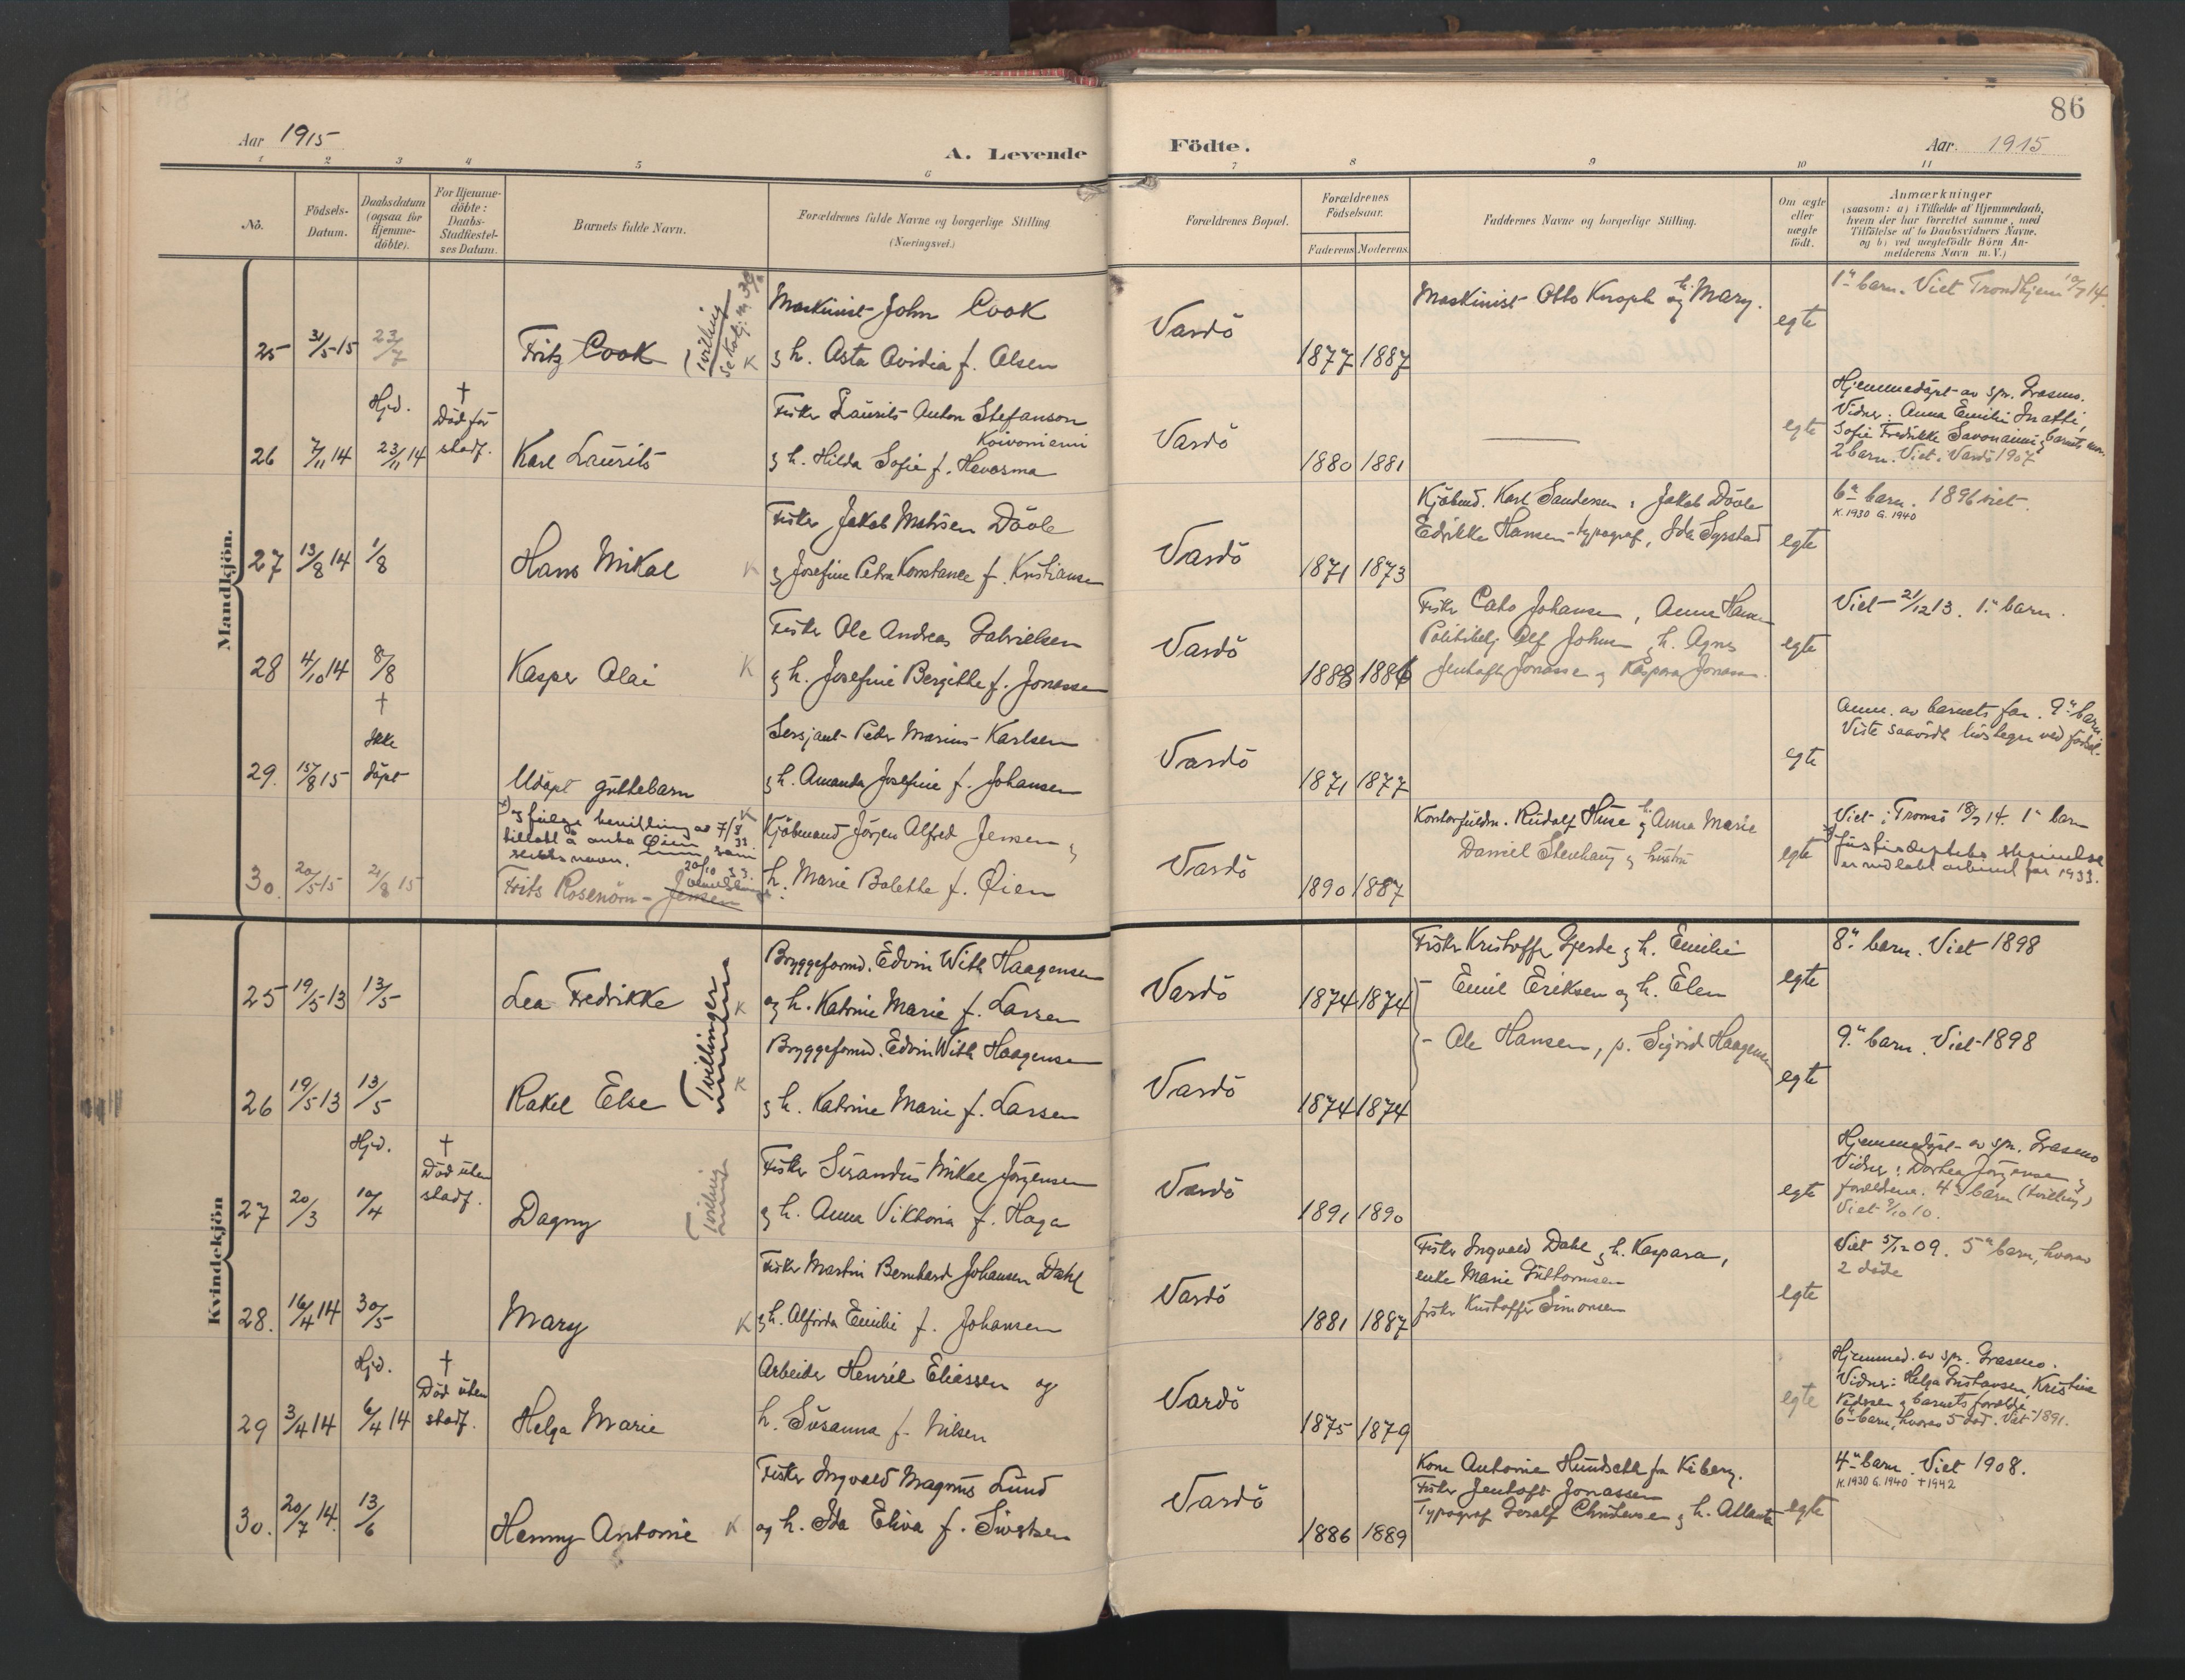 86
Aar 1915
A. Levende
Födte.
Aar. 1915
1
2
3
4
5
6
7
8
9
10
11
No.
Födsels-
Datum.
Daabsdatum
(ogsaa for
Hjemme-
döbte).
For Hjemme-
döbte:
Daabs-
Stadfæstel-
ses Datum.
Barnets fulde Navn.
Forældrenes fulde Navne og borgerlige Stilling
(Næringsvei.)
Forældrenes Bopæl.
Forældrenes
Födselsaar.
Faderens Moderens
Faddernes Navne og borgerlige Stilling.
Om ægte
eller
uægte
födt.
Anmærkninger
(saasom: a) i Tilfælde af Hjemmedaab,
hvem der har forrettet samme, med
Tilföielse af to Daabsvidners Navne,
og b) ved uægtefödte Börn An-
melderens Navn m. V.)
Mandkjön.
25 31/5 15 23/7 Fritz Cook
Tvilling
K
Maskinist John Cook
g h. Asta Ovidia f. Olsen
Vardö
1877 1887
Maskinist Otto Knoph og h. Mary.
egte
1ste barn. Viet Trondhjem 14.
26 7/11 14
Hjd.
23/11 14
†
Död för
stadf.
Karl Laurits
Fisker Laurits Anton Stefanson
Koivoniemi
g h. Hilda Sofie f. Havosma
Vardö
1880 1881
egte
Hjemmedöpt av spr. Grasmo.
Vidner: Anna Emilie
Sofie Fredrikke Savonaimi, barnets mor.
2 barn. Viet i Vardö 1907
27 13/8 14 1/8 Hans Mikal
K
Fisker Jakob Matisen Döole
g Josefine Petra Konstance f. Kristiansen
Vardö
1871 1873
Kjöbmd. Karl Sandersen, Jakob Döole
Edrikke Hansen typograf, Ida Syrstad
egte
6te barn. 1896 viet.
K. 1930 G. 1940
28 4/10 14 8/8 Kasper Olai
K
Fisker Ole Andreas Gabrielsen
g h. Josefine Bergitte f. Jonassen
Vardö
1888 1886
Fisker Cato Johansen, Anna Hansen
Politibetj. Alf Johnsen g h. Agnes
Jentoft Jonassen g Kaspara Jonassen.
egte
Viet 21/12 13. 1ste barn.
29. 15/8 15
†
Ikke
döpt
Udöpt guttebarn
Sersjant Peder Marius Karlsen
g h. Amanda Josefine f. Johansen
Vardö
1871 1877
egte
Anm. av barnets far. 9de barn.
Viste saavidt livstegn ved födsel.
30. 20/5 15 21/8 15
ifölge bevilling av 7/8 33.
tillatt å anta Öien som
slektsnavn.
Frits Rosenörn-Jensen
K
Kjöbmand Jörgen Alfred Jensen g
h. Marie Balette f. Öien
Vardö
1890 1887
Kontorfuldm. Rudolf Huse g h. Anna Marie
Daniel Stenhaug g hustru
egte
Viet i Tromsö 18/7 14. 1ste barn
Justisdeptets skrivelse
er nedlagt arkivet for 1933.
Kvindekjön
25 19/5 13 13/5 Lea Fredrikke
Tvillinger
K
Bryggeformd. Edvin With Haagensen
og h. Katrine Marie f. Larsen
Vardö
1874 1874
Fisker Kristoffer Gjerde g h. Emilie
- Emil Eriksen og h. Elen
- Ole Hansen, p. Sigrid Haagensen
egte
8de barn. Viet 1898
26 19/5 13 13/5 Rakel Else
K
Bryggeformd. Edvin With Haagensen
g h. Katrine Marie f. Larsen
Vardö
1874 1874
egte
9de barn. Viet 1898
27 20/3
Hjd.
10/4
†
Död uten
stadf.
Dagny
Tvilling
Fisker Sirandus Mikal Jörgensen
g h. Anna Viktoria f. Haga
Vardö
1891 1890
egte
Hjemmedöpt av spr. Grasmo
Vidner: Dorthea Jörgensen g
foreldrene. 4de barn (tvilling)
Viet 9/10 10.
28. 16/4 14 30/5 Mary
K
Fisker Martin Bernhard Johansen Dahl
g h. Alfrida Emilie f. Johansen
Vardö
1881 1887
Fisker Ingvald Dahl g h. Kaspara,
enke Marie Guttormsen
fisker Kristoffer Simonsen
egte
Viet 5/12 09. 5te barn, hvorav
2 döde
29 3/4 14
Hjd.
6/4 14
†
Död uten
stadf.
Helga Marie
Arbeider Henrik Eliassen og
h. Susanna f. Nilsen
Vardö
1875 1879
egte
Hjemmed. av spr. Grasmo.
Vidner: Helga Gustavsen, Kristine
Pedersen g barnets foreldre
6te barn, hvorav 5 död. Viet 1891.
30. 20/7 14. 13/6 Henny Antonie
K
Fisker Ingvald Magnus Lund
og h. Ida Eliva f. Sivertsen
Vardö
1886 1889
Kone Antonie Hundseth fra Kiberg.
Fisker Jentoft Jonassen
Typograf Geralf Christensen g h. Atlanta
egte
4de barn. Viet 1908.
K. 1930 G. 1940 † 1942